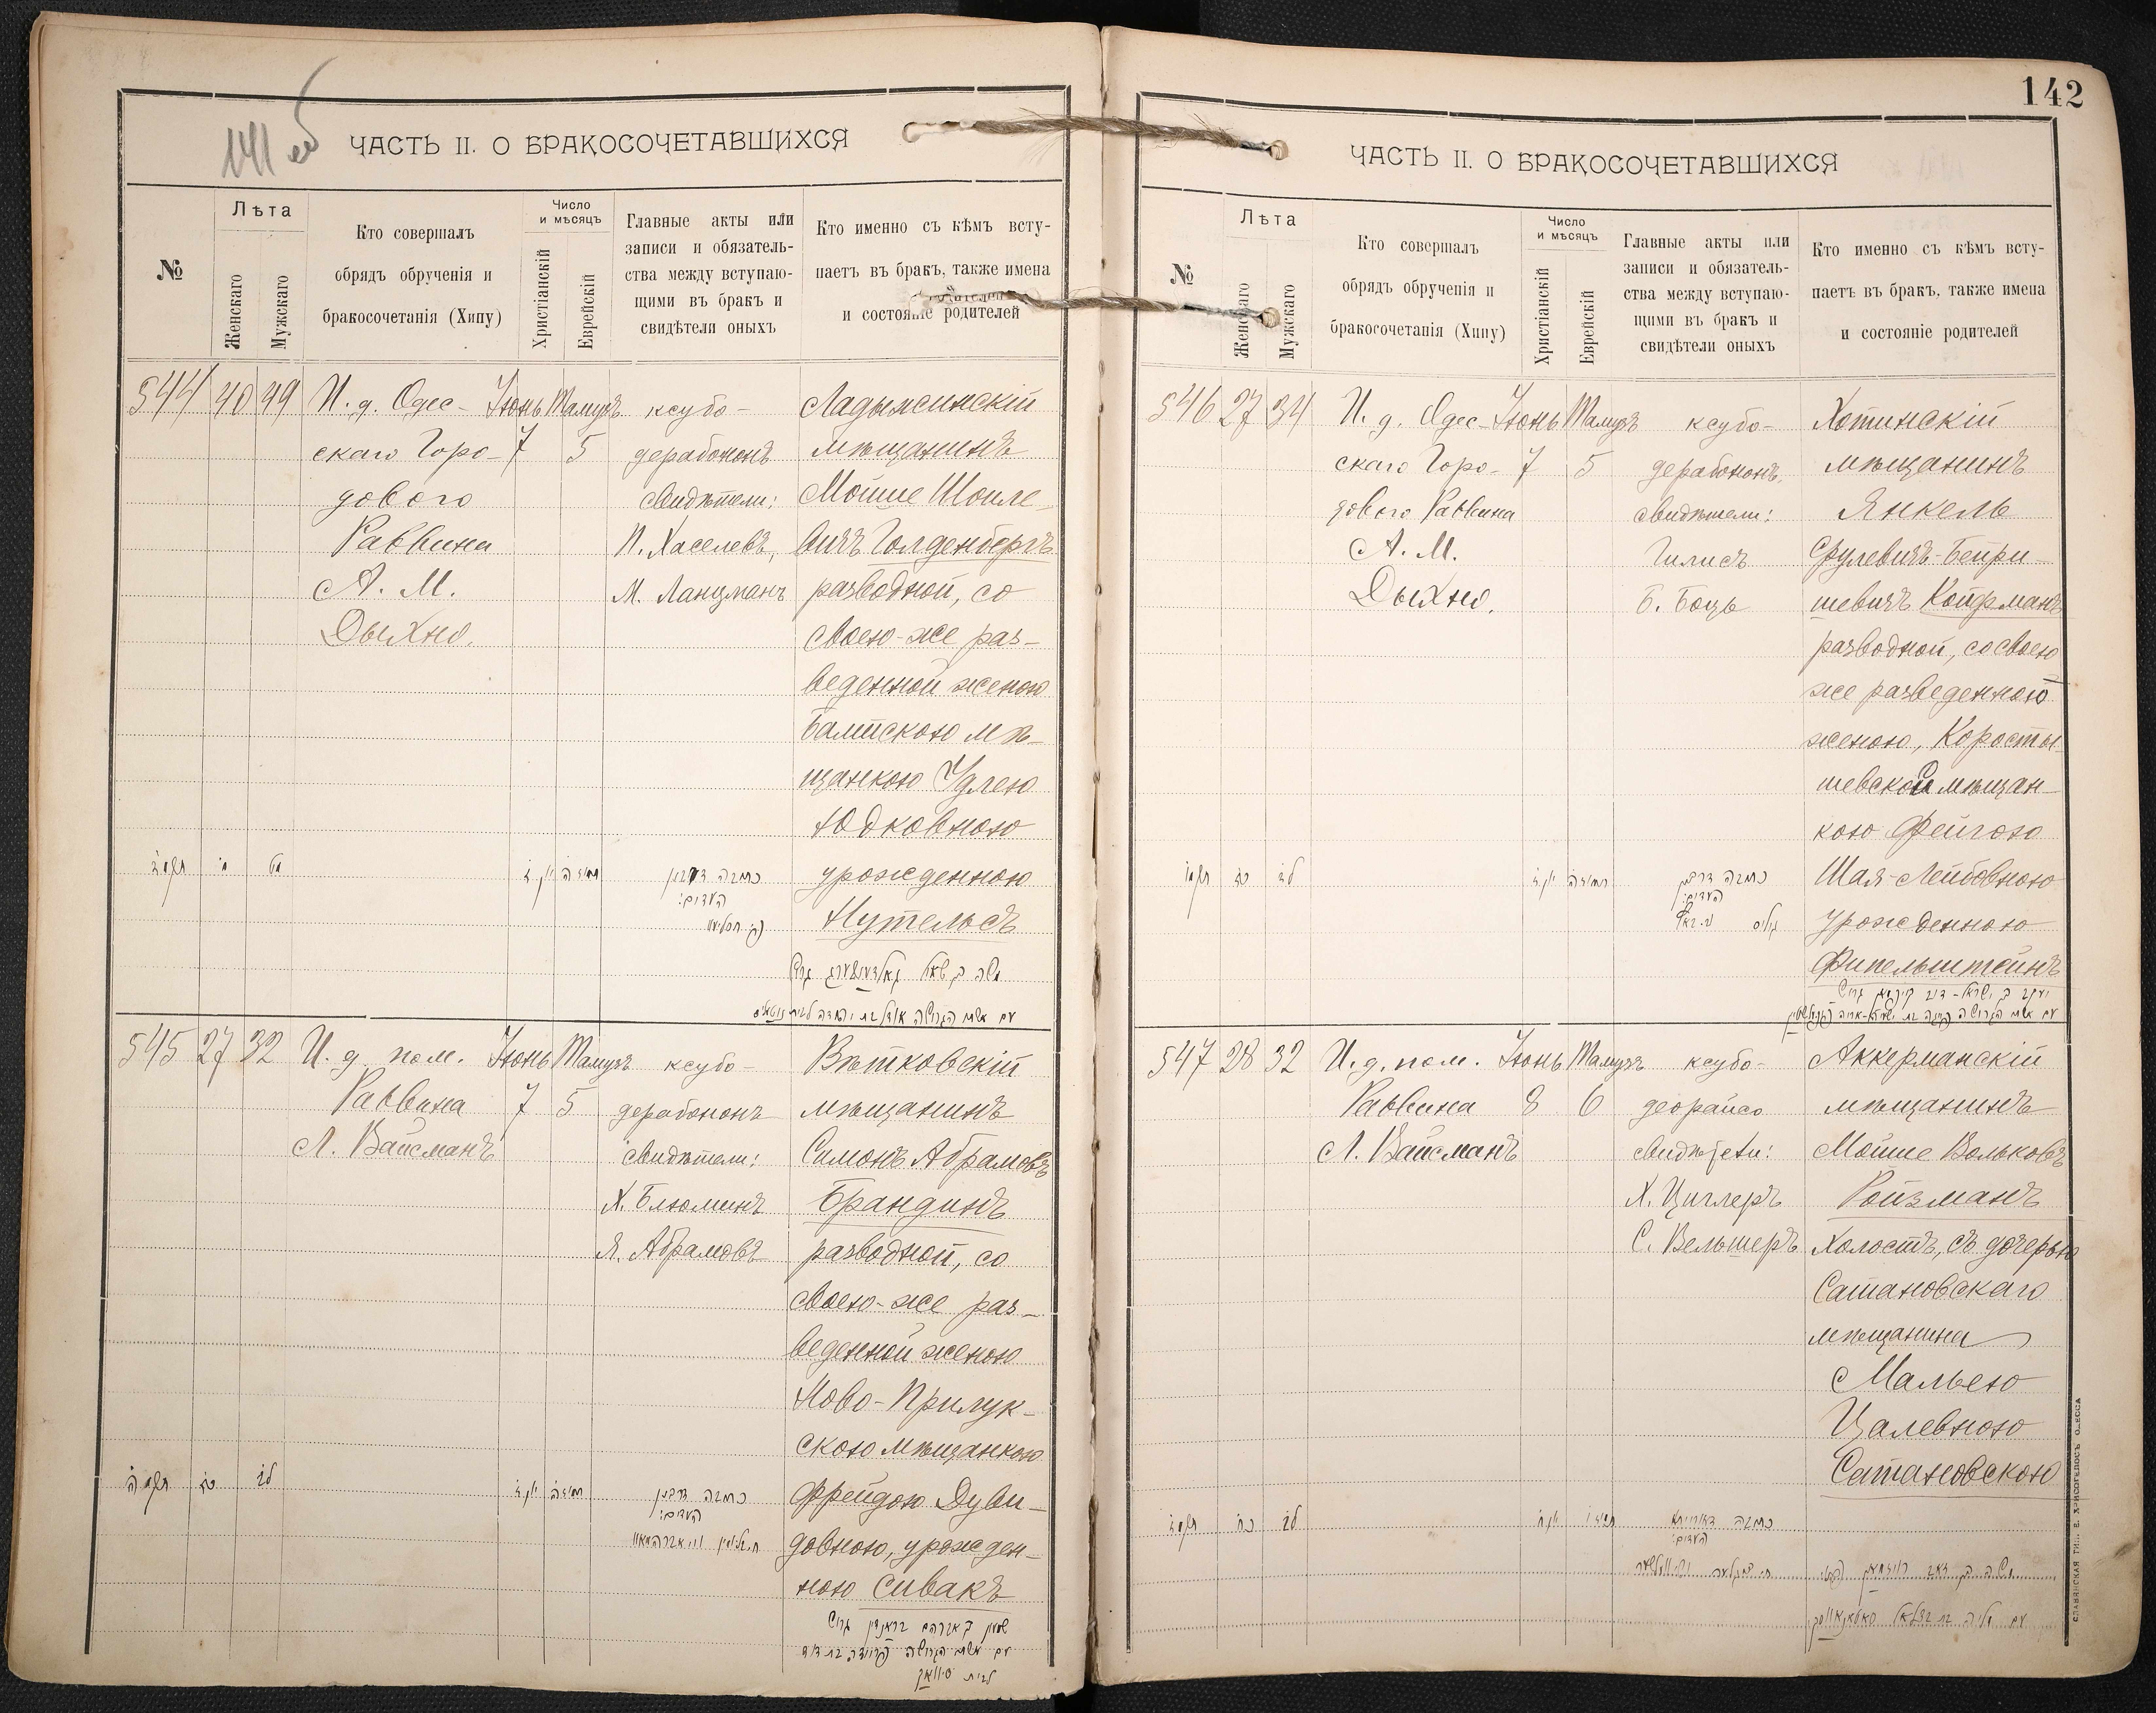 141 об
ЧАСТЬ II. О БРАКОСОЧЕТАВШИХСЯ
№
Лѣта
Женскаго
Мужскаго
Кто совершалъ
обрядъ обрученія и
бракосочетанія (Хипу)
Число
и мѣсяцъ
Христіанскій
Еврейскій
Главные акты или
записи и обязатель-
ства между вступаю-
щими въ бракъ и
свидѣтели оныхъ
Кто именно съ кѣмъ всту-
паетъ въ бракъ, также имена
и состояніе родителей
544 40 49
И. д. Одес-
скаго Горо-
дового
Раввина
А. М.
Дыхно.
Іюнь Тамузъ
7 5
ксубо-
дерабононъ
свидѣтели:
П. Хаселевъ,
М. Ланцманъ
Ладыжинскій
мѣщанинъ
Мойше Шоиле-
вичъ Голденбергъ
разводной, со
своею-же раз-
веденной женою
Балтскою мѣ-
щанкою Удлею
Юдковною
урожденною
Нутельсъ
כתובה דרבנן
העדים:
545 27 32
И. д. пом.
Раввина
Л. Вайсманъ
Іюнь Тамузъ
7 5
ксубо-
дерабононъ
свидѣтели:
Х. Блюминъ
Я. Абрамовъ
Вѣтковскій
мѣщанинъ
Симонъ Абрамовъ
Брандинъ
разводной, со
своею-же раз-
веденной женою
Ново-Прилук-
скою мѣщанкою
Фрейдою Дуви-
довною, урожден-
ною Сивакъ
כתובה דרבנן
העדים:
שמעון ב אברהם בראנדין גרוש
עם אשתו הגרושה פריידה בת דוד
לבית סיוואק
142
ЧАСТЬ II. О БРАКОСОЧЕТАВШИХСЯ
№
Лѣта
Женскаго
Мужскаго
Кто совершалъ
обрядъ обрученія и
бракосочетанія (Хипу)
Число
и мѣсяцъ
Христіанскій
Еврейскій
Главные акты или
записи и обязатель-
ства между вступаю-
щими въ бракъ и
свидѣтели оныхъ
Кто именно съ кѣмъ всту-
паетъ въ бракъ, также имена
и состояніе родителей
546 27 34
И. д. Одес-
скаго Горо-
дового Раввина
А. М.
Дыхно.
Іюнь Тамузъ
7 5
ксубо-
дерабононъ,
свидѣтели:
Гилисъ
Б. Боць
Хотинскій
мѣщанинъ
Янкель
Срулевичъ-Бейри-
шевичъ Койфманъ
разводной, со своею
же разведенною
женою, Коросты-
шевской мѣщан-
кою Фейгою
Шая-Лейбовною
урожденною
Фипельштейнъ
כתובה דרבנן
העדים:
547 28 32
И. д. пом.
Раввина
Л. Вайсманъ
Іюнь Тамузъ
8 6
ксубо-
деорайсо
свидѣтели:
Х. Циглеръ
С. Вельшеръ
Аккерманскій
мѣщанинъ
Мойше Вольковъ
Ройзманъ
Холостъ, съ дочерью
Сатановскаго
мѣщанина
Мальею
Цалевною
Сатановскою
כתובה דאורייתא
העדים:
СЛАВЯНСКАЯ ТИП. Е. ХРИСОГЕЛОСЪ ОДЕССА